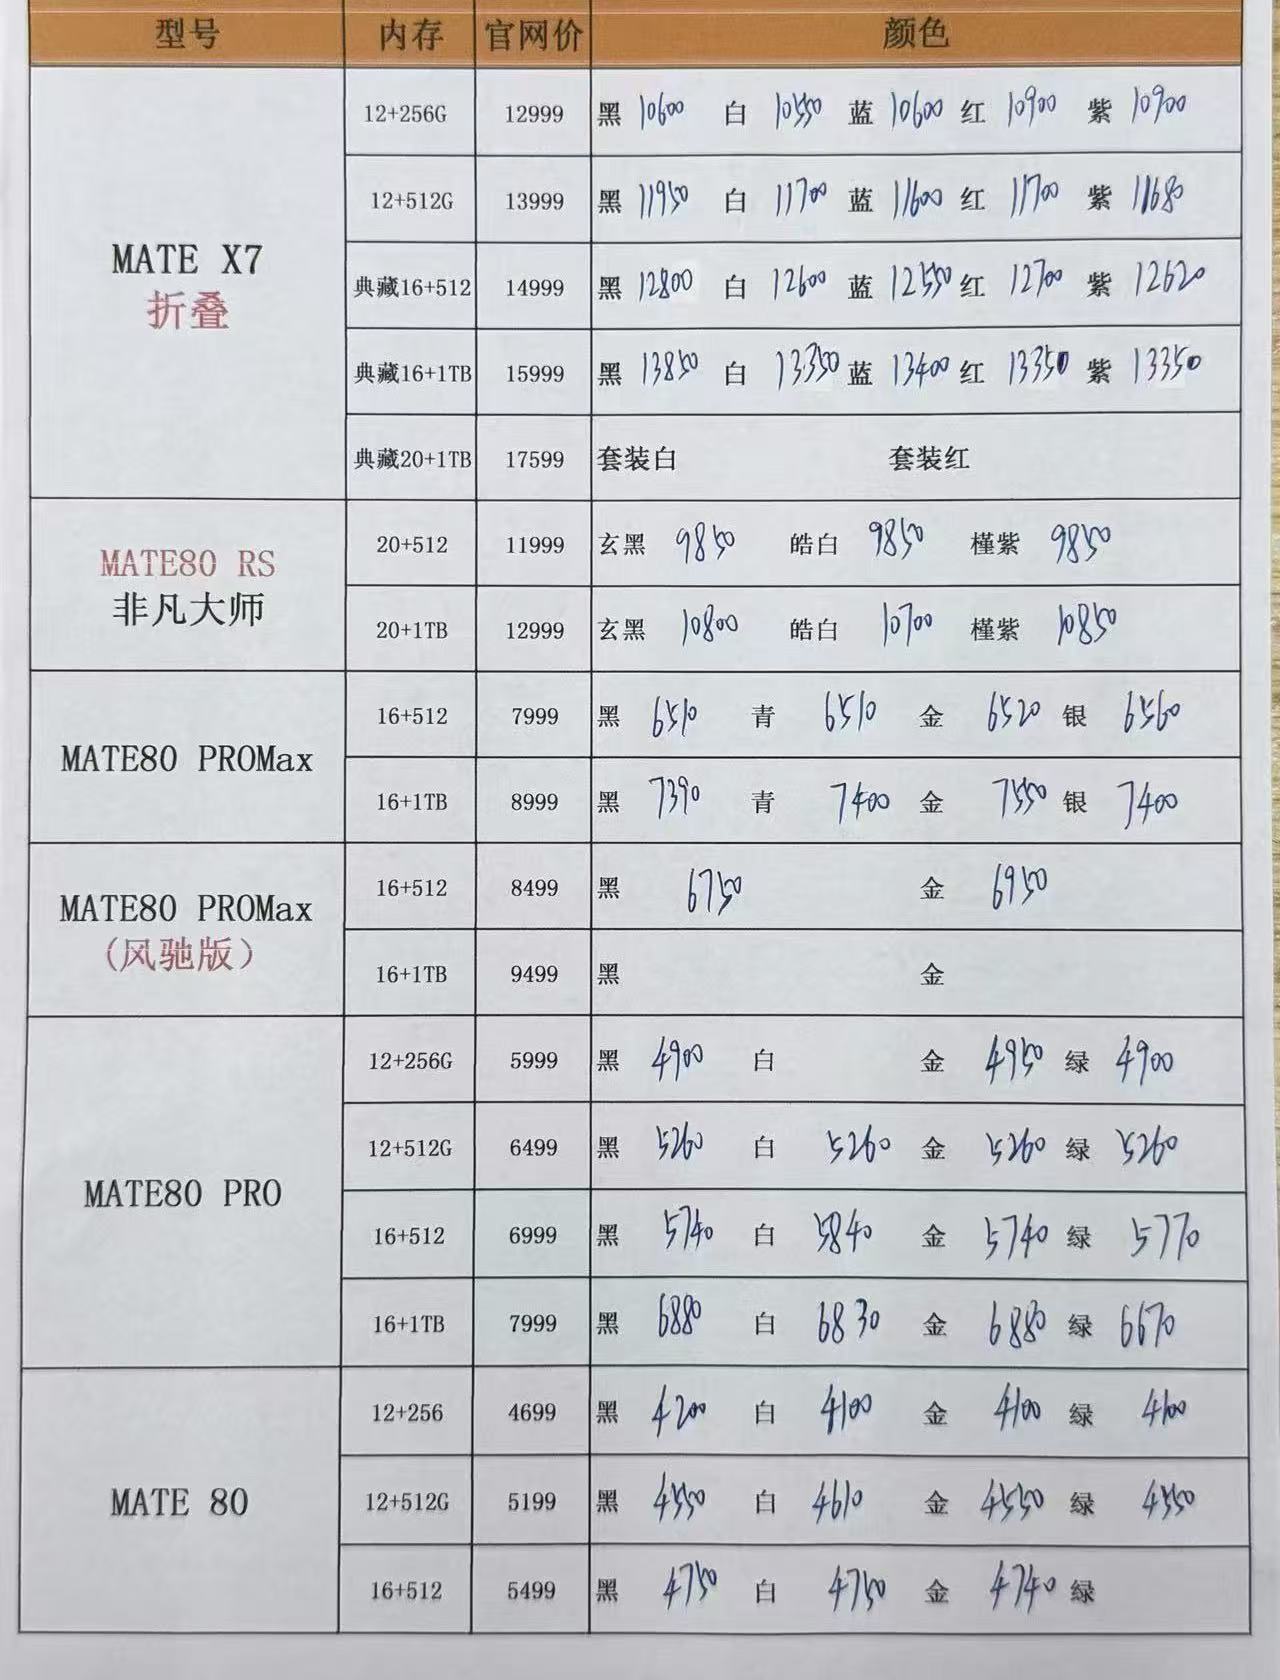 型号 内存 官网价 颜色
12+256G 12999 黑 10600 白 10550 蓝 10600 红 10900 紫 10900
12+512G 13999 黑 11950 白 11700 蓝 11600 红 11700 紫 11680
MATE X7
折叠
典藏16+512 14999 黑 12800 白 12600 蓝 12550 红 12700 紫 12620
典藏16+1TB 15999 黑 13850 白 13350 蓝 13400 红 13350 紫 13350
典藏20+1TB 17599 套装白 套装红
MATE80 RS
非凡大师
20+512 11999 玄黑 9850 皓白 9850 槿紫 9850
20+1TB 12999 玄黑 10800 皓白 10700 槿紫 10850
MATE80 PROMax
16+512 7999 黑 6510 青 6510 金 6520 银 6560
16+1TB 8999 黑 7390 青 7400 金 7550 银 7400
MATE80 PROMax
(风驰版)
16+512 8499 黑 6750 金 6950
16+1TB 9499 黑 金
MATE80 PRO
12+256G 5999 黑 4900 白 金 4950 绿 4900
12+512G 6499 黑 5260 白 5260 金 5260 绿 5260
16+512 6999 黑 5740 白 5840 金 5740 绿 5770
16+1TB 7999 黑 6880 白 6830 金 6880 绿 6670
MATE 80
12+256 4699 黑 4200 白 4100 金 4100 绿 4100
12+512G 5199 黑 4550 白 4610 金 4550 绿 4550
16+512 5499 黑 4750 白 4750 金 4740 绿